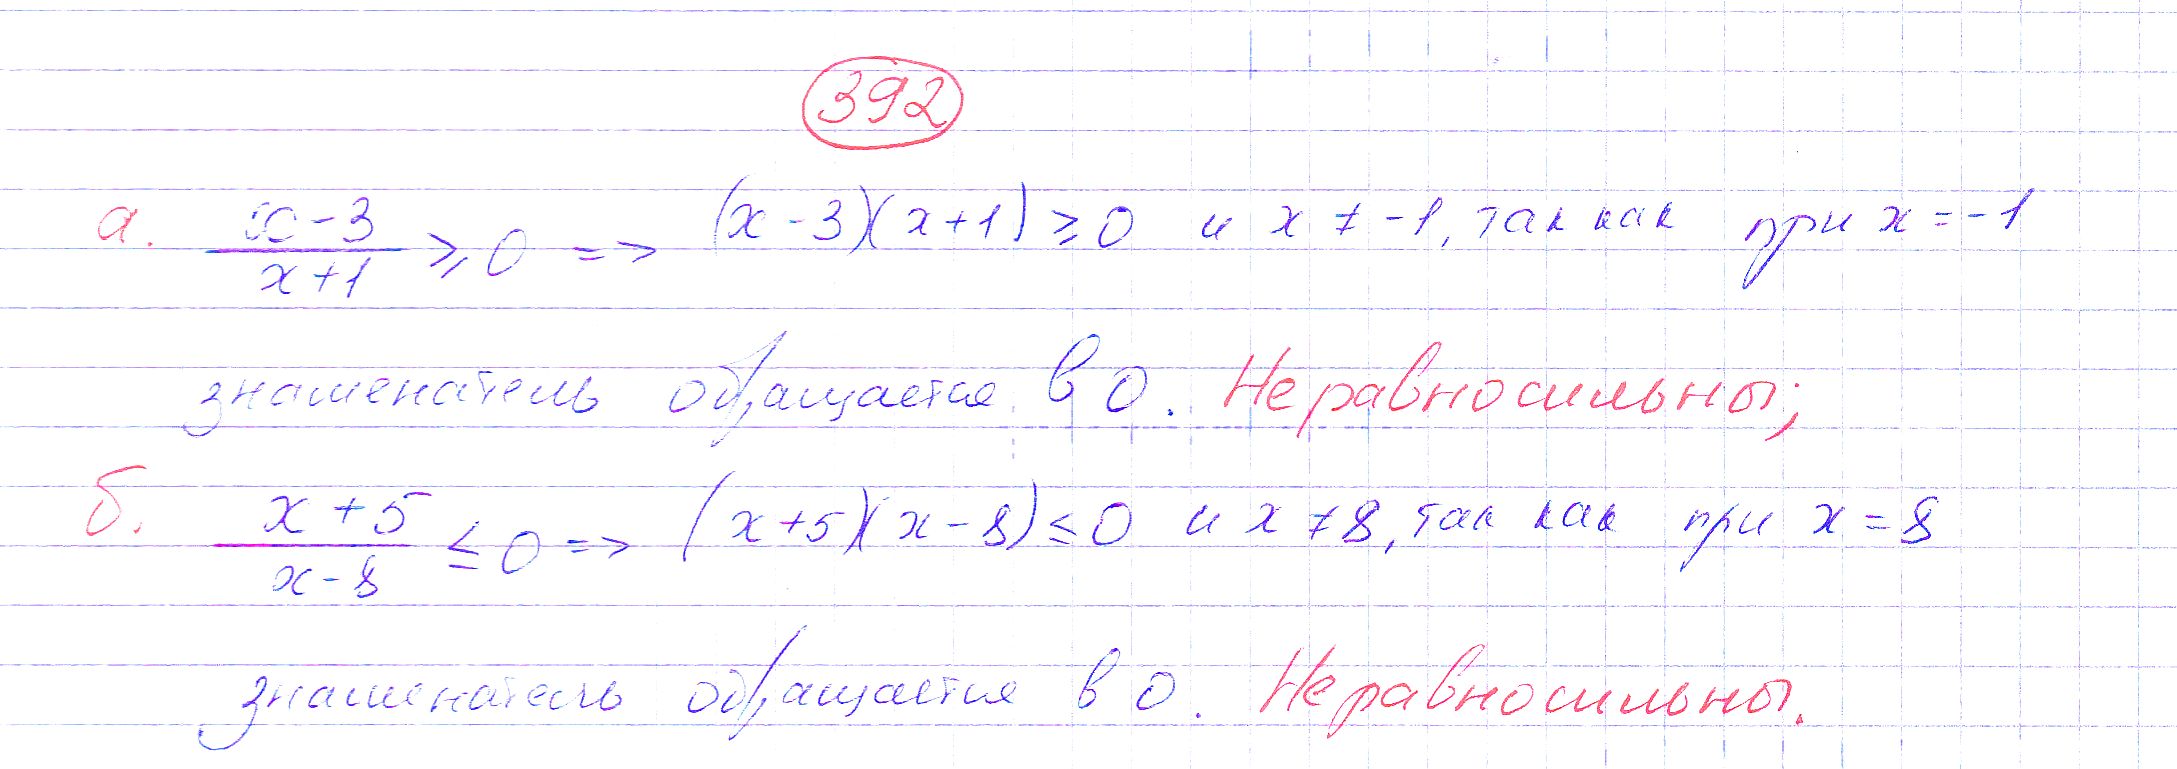 392
а. (x-3)/(x+1) ⩾ 0 => (x-3)(x+1) ≥ 0 и x ≠ -1, так как при x = -1
знаменатель обращается в 0. Неравносильны;
б. (x+5)/(x-8) ≤ 0 => (x+5)(x-8) ≤ 0 и x ≠ 8, так как при x = 8
знаменатель обращается в 0. Неравносильны.